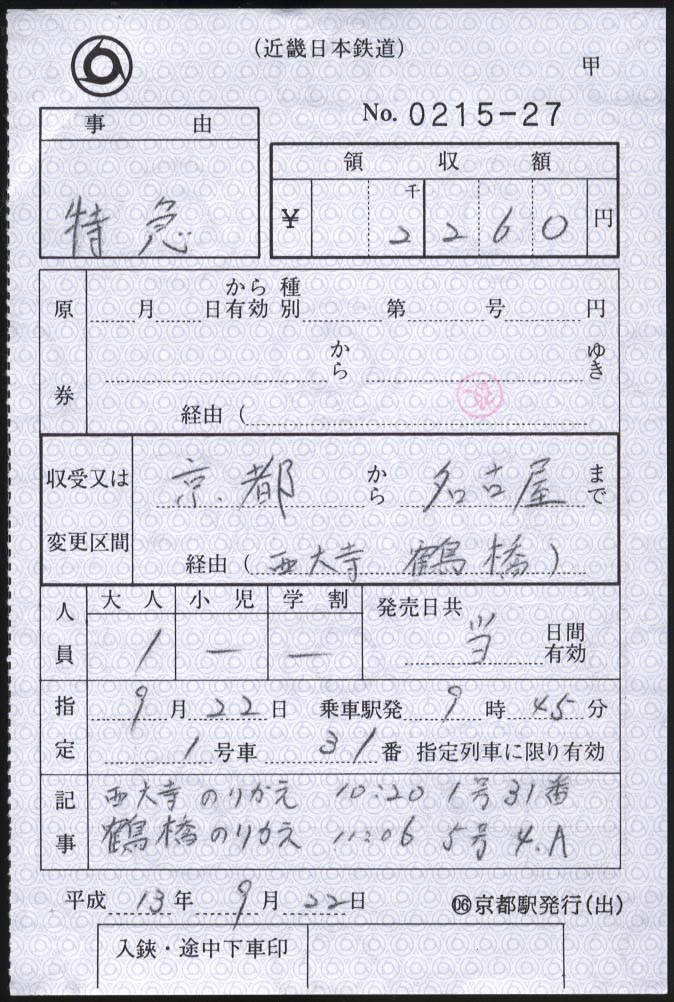 (近畿日本鉄道)
甲
No. 0215-27
事由
特急
領収額
¥ 千 2 2 6 0 円
原券
月 日から有効 種別 第 号 円
から ゆき
経由 (
収受又は変更区間
京都 から 名古屋 まで
経由 (西大寺 鶴橋)
人員
大人 小児 学割 発売日共
1 ー ー 当 日間有効
指定
9月22日 乗車駅発 9時45分
1号車 31番 指定列車に限り有効
記事
西大寺 のりかえ 10:20 1号31番
鶴橋のりかえ 11:06 5号 4.A
平成13年9月22日 06京都駅発行(出)
入鋏・途中下車印